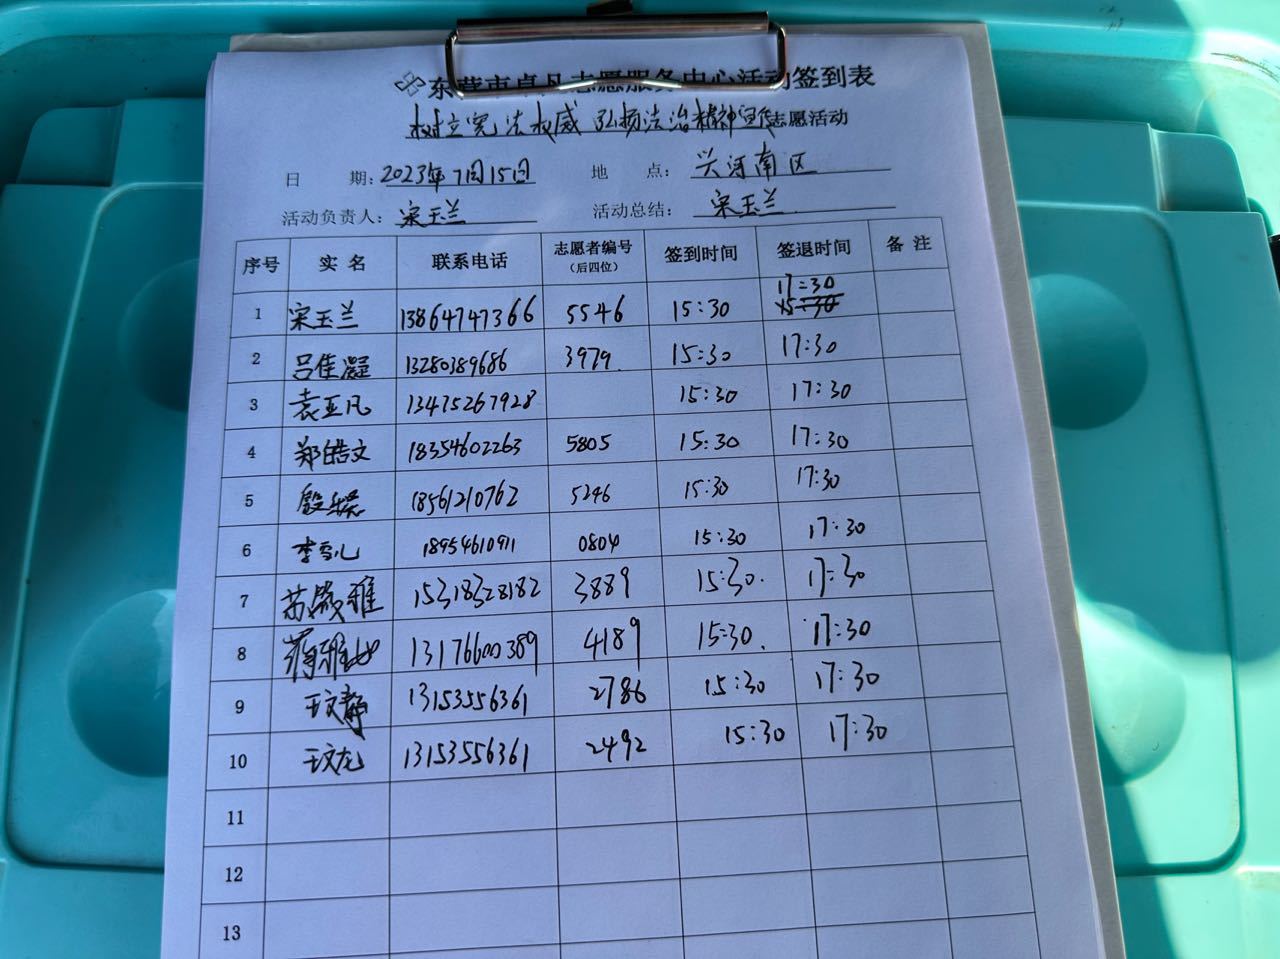 东营市卓凡志愿服务中心活动签到表
树立宪法权威 弘扬法治精神宣传志愿活动
日 期：2023年7月15日 地 点：兴河南区
活动负责人：宋玉兰 活动总结：宋玉兰
序号 实 名 联系电话 志愿者编号（后四位） 签到时间 签退时间 备 注
1 宋玉兰 13864747366 5546 15:30 17:30 15:30
2 吕佳凝 13280389686 3979 15:30 17:30
3 袁亚凡 13475267928 15:30 17:30
4 郑皓文 18354602263 5805 15:30 17:30
5 18561210762 5246 15:30 17:30
6 李雪儿 18954610911 0804 15:30 17:30
7 15318328182 3889 15:30. 17:30
8 13176600389 4189 15:30. 17:30
9 王文静 13153556361 2786 15:30 17:30
10 王文龙 13153556361 2492 15:30 17:30
11
12
13